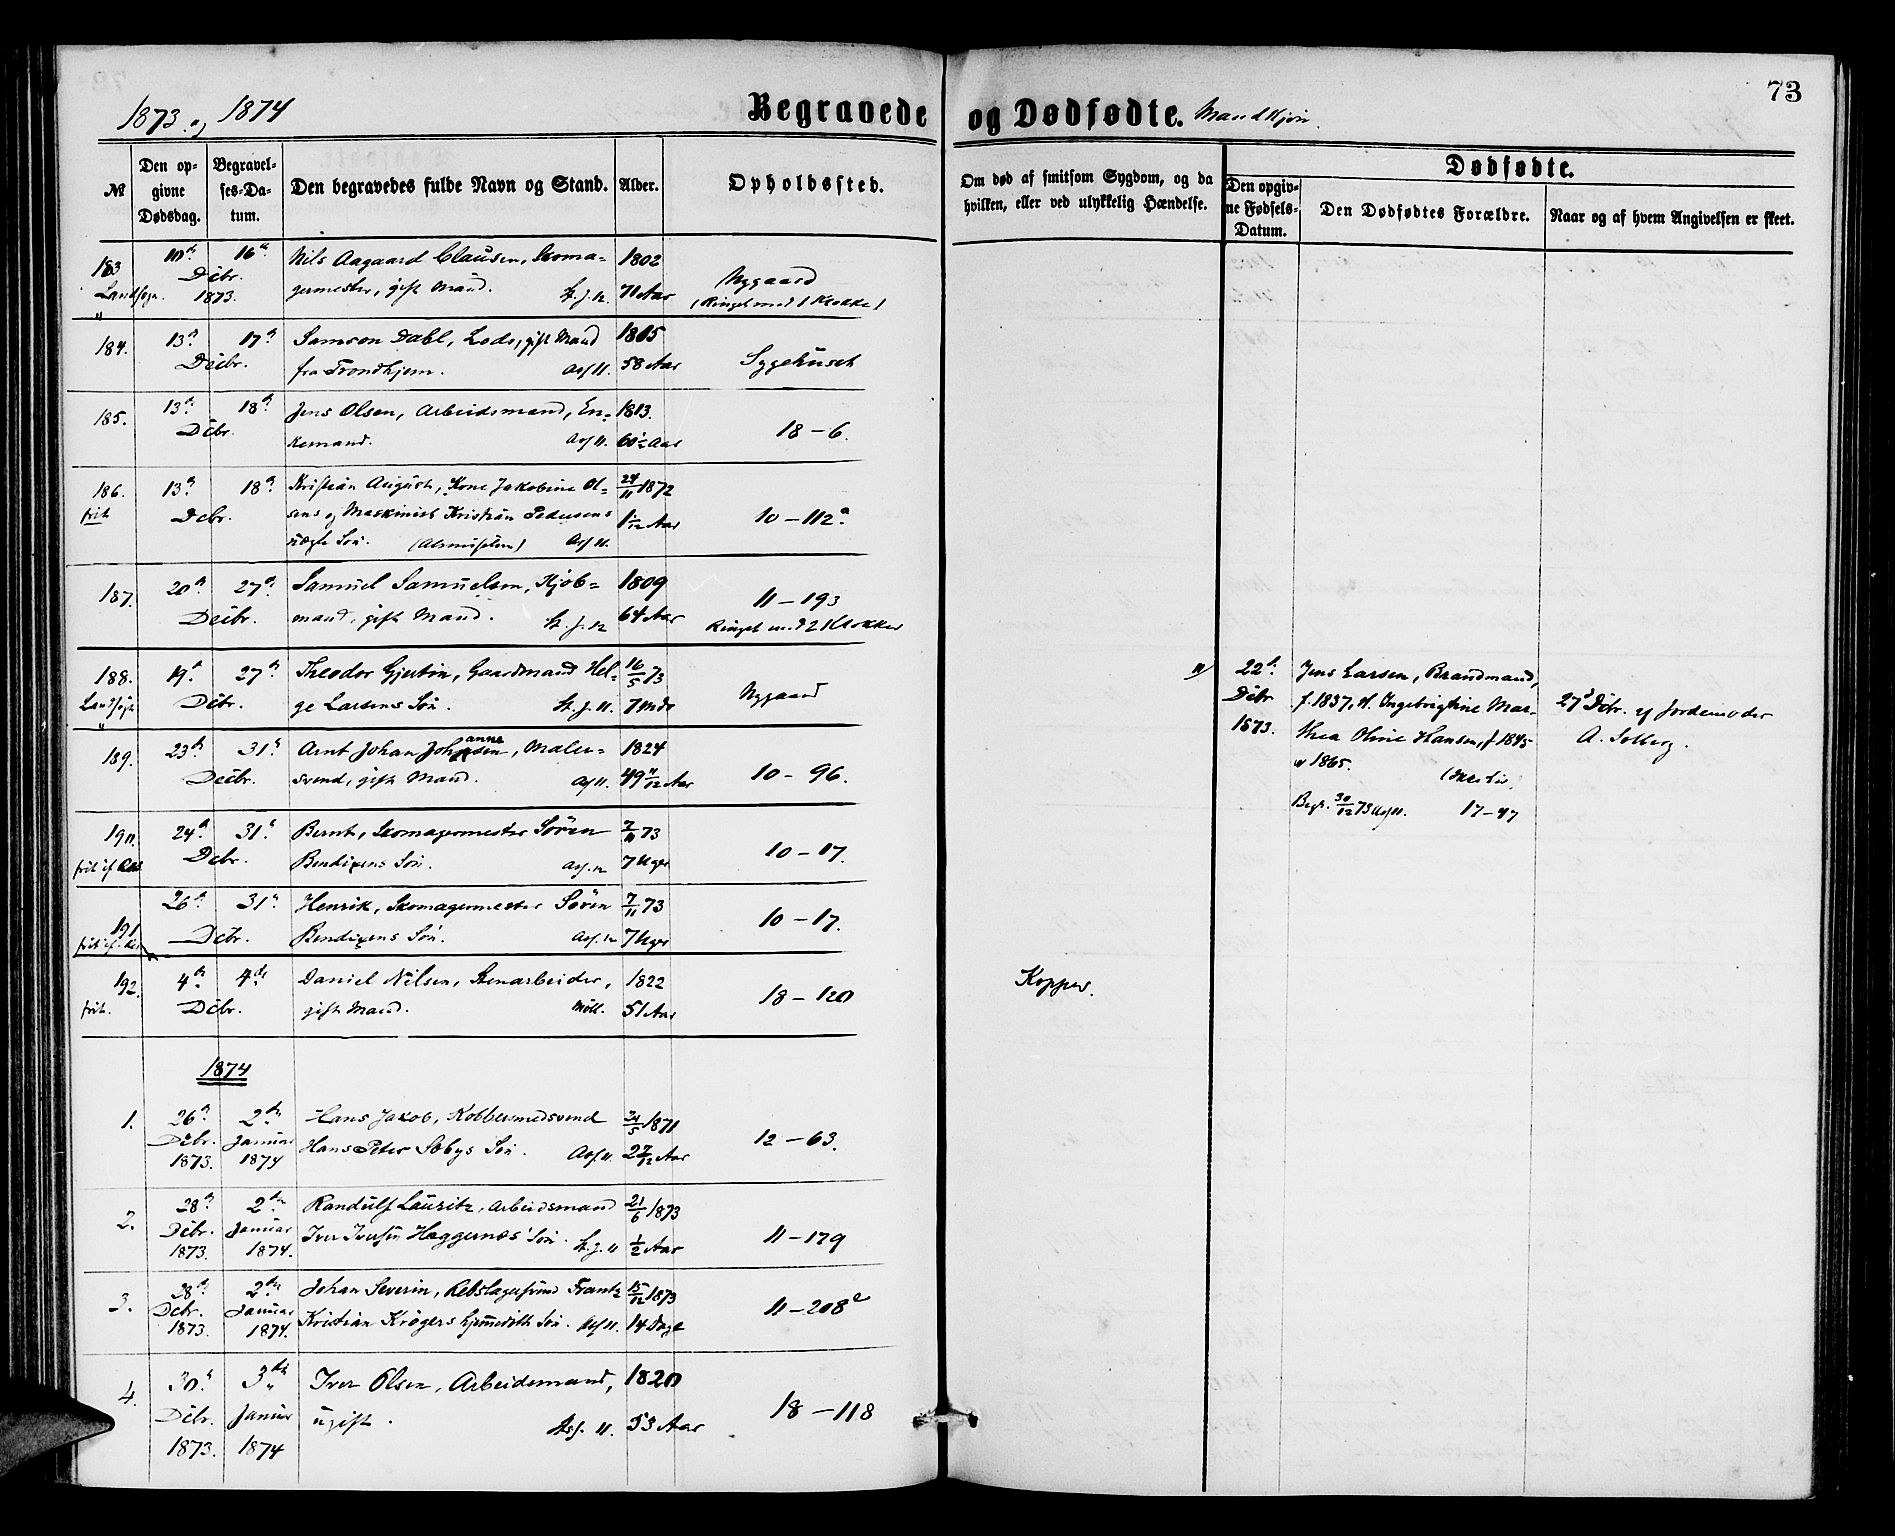 73
1873 og 1874
Begravede og Dødfødte. Mandkjøn.
№
Den opgivne Dødsdag.
Begravelses-Datum.
Den begravedes fulde Navn og Stand.
Alder.
Opholdssted.
Om død af smitsom Sygdom, og da hvilken, eller ved ulykkelig Hændelse.
Dødfødte.
Den opgivne Fødsels-Datum.
Den Dødfødtes Forældre.
Naar og af hvem Angivelsen er skeet.
183 10de 16de Nils Aagaard Clausen, Skoma- 1802 Nygaard
Landsogn. Dcbr. 1873. germester, gift Mand. 71 Aar (Ringet med 1 Klokke)
184. 13de 17de Samson Dahl, Lods, gift Mand 1815
Dcbr. fra Trondhjem. Ass. 11. 58 Aar Sygehuset
185. 13de 18de Jens Olsen, Arbeidsmand, En- 1813.
Dcbr. kemand. Ass. 11. 60½ Aar 18 – 6.
186. 13de 18de Kristian August, Kone Jakobine Ol- 24/11 1872
frit Dcbr. sens og Maskinist Kristian Pedersens 1 1/12 Aar 10 – 112a
uægte Søn. Ass. 11.
187. 20de 27de Samuel Samuelsen, Kjøb- 1809 11 – 193
Dcbr. mand, gift Mand. 64 Aar Ringet med 2 Klokker
188. 19de 27de Theodor Gjertin, Gaardmand Hel- 16/5 73 Nygaard
Landsogn Dcbr. ge Larsens Søn. 7 Mdr
189. 23de 31te Arnt Johan Johannesen, Maler- 1824
Dcbr. svend, gift Mand. Ass. 11. 49 11/12 Aar 10 – 96.
190. 24de 31te Bernt, Skomagermester Sören 7/11 73
Dcbr. Bendixens Søn. Ass. 12 7 Uger 10 – 17.
191 26de 31te Henrik, Skomagermester Sören 7/11 73
Dcbr. Bendixens Søn. Ass. 12 7 Uger 10 – 17.
192. 4de 4de Daniel Nilsen, Stenarbeider, 1822 18 – 120 Kopper.
frit. Dcbr. gift Mand. Möll. 51 Aar
1874
1. 26de 2den Hans Jakob, Kobbersmedsvend 24/5 1871
Dcbr. Januar Hans Peter Søbys Søn. Ass. 11. 2 7/12 Aar 12 – 63.
1873. 1874
2. 28de 2den Randulf Lauritz, Arbeidsmand 21/6 1873
Dcbr. Januar Iver Iversen Haggernæs' Søn. ½ Aar 11 – 179
1873. 1874.
3. 28de 2den Johan Severin, Rebslagersvend Frantz 15/12 1873
Dcbr. Januar Kristian Krögers hjemmedøbt Søn. Ass. 11. 14 Dage 11 – 208
1873. 1874.
4. 30te 3die Iver Olsen, Arbeidsmand, 1820
Dcbr. Januar ugift. Ass. 11. 53 Aar 18 – 118
1873. 1874
22de Jens Larsen, Brandmand,
Dcbr f. 1837, H. Ingebrigtine Mar- 27de Dcbr. af Jordemoder
1873. thea Oline Hansen, f. 1845 A. Solberg.
v 1865.
Begr. 30/12 73 Ass. 11. 17 – 47